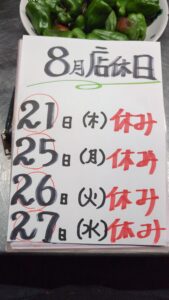 8月店休日
21日(木)休み
25日(月)休み
26日(火)休み
27日(水)休み